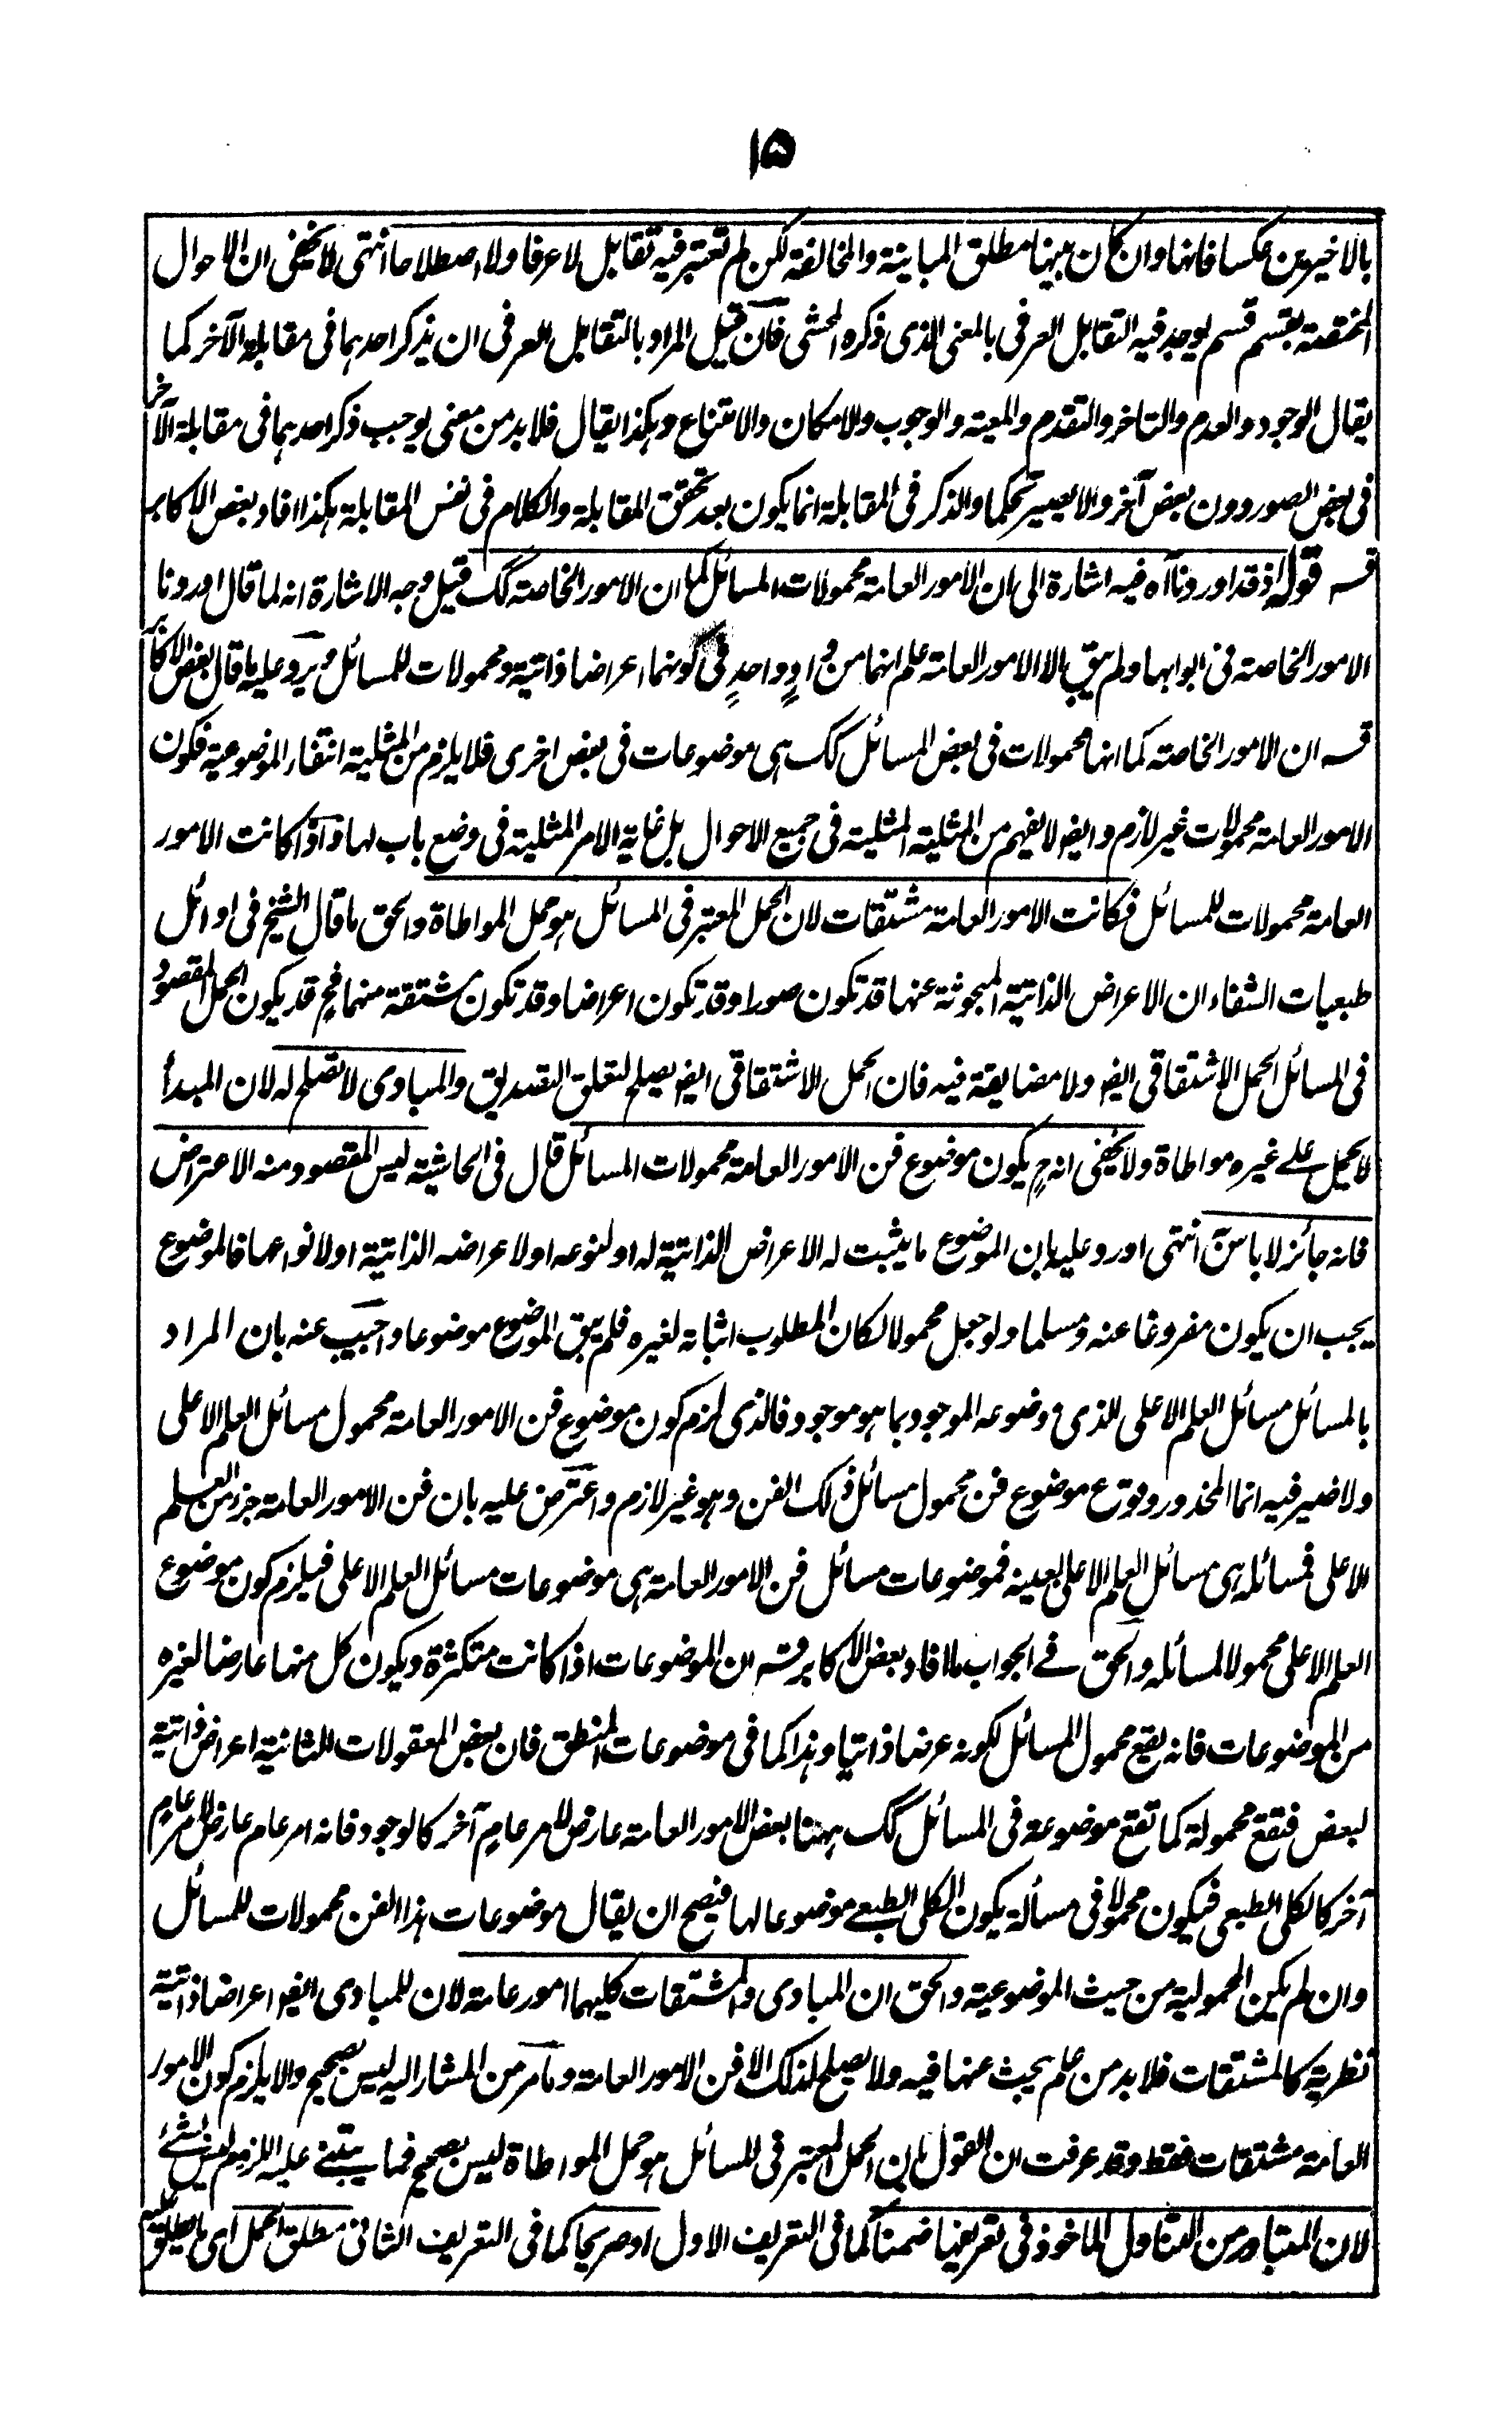 ١۵
بالاخيرين عكسا فانها وان كان بينها مطلق المباينة والمخالفة لكن لم تعتبر فيه تقابل لا عرفا ولا اصطلاحا انتهى لا يخفى ان الاحوال
المختصة بقسم قسم يوجد فيه التقابل العرفى بالمعنى الذى ذكره المحشى فان قيل المراد بالتقابل العرفى ان يذكر احدهما فى مقابلة الآخر كما
يقال الوجود والعدم والتاخر والتقدم والمعية والوجوب والامكان والامتناع وهكذا يقال فلا بد من معنى يوجب ذكر احدهما فى مقابلة الآخر
فى بعض الصور دون بعض آخر والا يصير تحكما والذكر فى المقابلة انما يكون بعد تحقق المقابلة والكلام فى نفس المقابلة هكذا افاد بعض الاكابر
قسه قوله اذ قد اوردنا آه فيه اشارة الى ان الامور العامة محمولات المسائل كما ان الامور الخاصة كك قيل وجه الاشارة انه لما قال اوردنا
الامور الخاصة فى ابوابها ولم يبق الا الامور العامة علم انهما من وادٍ واحدٍ فى كونهما اعراضا ذاتية ومحمولات للمسائل ويرد عليه ما قال بعض الاكابر
قسه ان الامور الخاصة كما انها محمولات فى بعض المسائل كك هى موضوعات فى بعض اخرى فلا يلزم من المثلية انتفاء الموضوعية فكون
الامور العامة محمولات غير لازم وايضا لا يفهم من المثلية المثلية فى جميع الاحوال بل غاية الامر المثلية فى وضع باب لها واذا كانت الامور
العامة محمولات للمسائل فكانت الامور العامة مشتقات لان الحمل المعتبر فى المسائل هو حمل المواطاة والحق ما قال الشيخ فى اوائل
طبعيات الشفاء ان الاعراض الذاتية المبحوثة عنها قد تكون صورا وقد تكون اعراضا وقد تكون مشتقة منهما فح قد يكون الحمل المقصود
فى المسائل الحمل الاشتقاقى ايضا ولا مضايقة فيه فان الحمل الاشتقاقى ايضا يصلح لتعلق التصديق والمبادى لا تصلح له لان المبدأ
لا يحمل على غيره مواطاة ولا يخفى انه ح يكون موضوع فن الامور العامة محمولات المسائل قال فى الحاشية ليس المقصود منه الاعتراض
فانه جائز لا باس انتهى اورد عليه بان الموضوع ما يثبت له الاعراض الذاتية له او لنوعه او لاعراضه الذاتية او لانواعها فالموضوع
يجب ان يكون مفروغا عنه ومسلما ولو جعل محمولا لكان المطلوب اثباته لغيره فلم يبق الموضوع موضوعا واجيب عنه بان المراد
بالمسائل مسائل العلم الاعلى الذى موضوعه الموجود بما هو موجود فالذى لزم كون موضوع فن الامور العامة محمول مسائل العلم الاعلى
ولا ضير فيه انما المحذور وقوع موضوع فن محمول مسائل ذلك الفن وهو غير لازم واعترض عليه بان فن الامور العامة جزء من العلم
الاعلى فمسائله هى مسائل العلم الاعلى بعينه فموضوعات مسائل فن الامور العامة هى موضوعات مسائل العلم الاعلى فيلزم كون موضوع
العلم الاعلى محمولا لمسائله والحق فى الجواب ما افاد بعض الاكابر قسه ان الموضوعات اذا كانت متكثرة ويكون كل منها عارضا لغيره
من الموضوعات فانه يقع محمول المسائل لكونه عرضا ذاتيا وهذا كما فى موضوعات المنطق فان بعض المعقولات الثانية اعراض ذاتية
لبعض فتقع محمولة كما تقع موضوعة فى المسائل كك ههنا بعض الامور العامة عارض لامر عام آخر كالوجود فانه امر عام عارض لامر عام
آخر كالكلى الطبعى فيكون محمولا فى مسألة يكون الكلى الطبعى موضوعا لها فيصح ان يقال موضوعات هذا الفن محمولات للمسائل
وان لم يكن المحمولية من حيث الموضوعية والحق ان المبادى والمشتقات كليهما امور عامة لان للمبادى ايضا اعراضا ذاتية
نظرية كالمشتقات فلا بد من علم يبحث عنها فيه ولا يصلح لذلك الا فن الامور العامة وما مر من المشار اليه ليس بصحيح والا يلزم كون الامور
العامة مشتقات فقط وقد عرفت ان القول بان الحمل المعتبر فى المسائل هو حمل المواطاة ليس بصحيح فما يبتنى عليه اللزوم ليس بشئ
لان المتبادر من التناول الماخوذ فى تعريفها ضمنا كما فى التعريف الاول او صريحا كما فى التعريف الثانى مطلق الحمل اى ما يطلق عليه